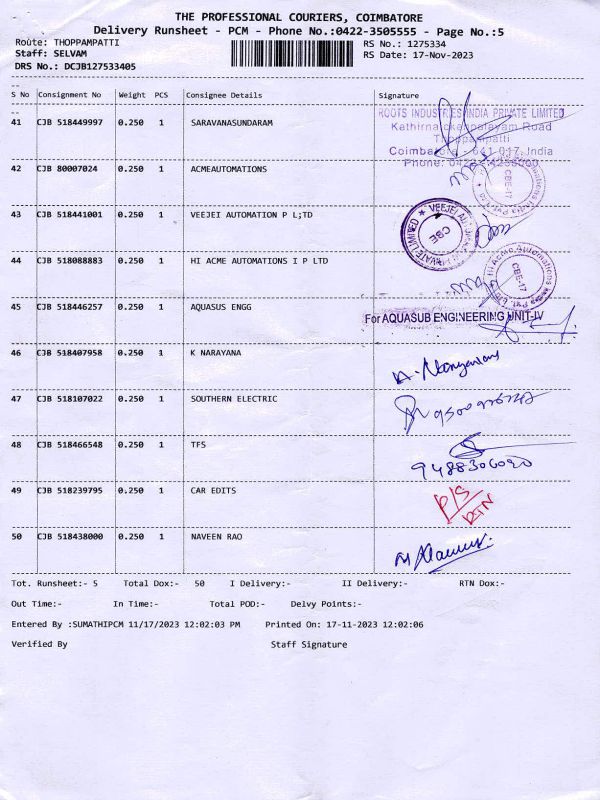 THE PROFESSIONAL COURIERS, COIMBATORE
Delivery Runsheet - PCM - Phone No.:0422-3505555 - Page No.:5
Route: THOPPAMPATTI
RS No.: 1275334
Staff: SELVAM
RS Date: 17-Nov-2023
DRS No.: DCJB127533405
S No Consignment No Weight PCS Consignee Details Signature
41 CJB 518449997 0.250 1 SARAVANASUNDARAM
ROOTS INDUSTRIES INDIA PRIVATE LIMITED
Kathirnaickenpalayam Road
Thoppampatti
Coimbatore - 641 017, India
42 CJB 80007024 0.250 1 ACMEAUTOMATIONS
CBE-17
43 CJB 518441001 0.250 1 VEEJEI AUTOMATION P L;TD
CBE
44 CJB 518088883 0.250 1 HI ACME AUTOMATIONS I P LTD
Hi Acme Automations India Pvt. Ltd.
CBE-17
45 CJB 518446257 0.250 1 AQUASUS ENGG
For AQUASUB ENGINEERING UNIT-IV
46 CJB 518407958 0.250 1 K NARAYANA
47 CJB 518107022 0.250 1 SOUTHERN ELECTRIC
48 CJB 518466548 0.250 1 TFS
9488306090
49 CJB 518239795 0.250 1 CAR EDITS
P/S
RTN
50 CJB 518438000 0.250 1 NAVEEN RAO
Tot. Runsheet:- 5 Total Dox:- 50 I Delivery:- II Delivery:- RTN Dox:-
Out Time:- In Time:- Total POD:- Delvy Points:-
Entered By :SUMATHIPCM 11/17/2023 12:02:03 PM Printed On: 17-11-2023 12:02:06
Verified By Staff Signature